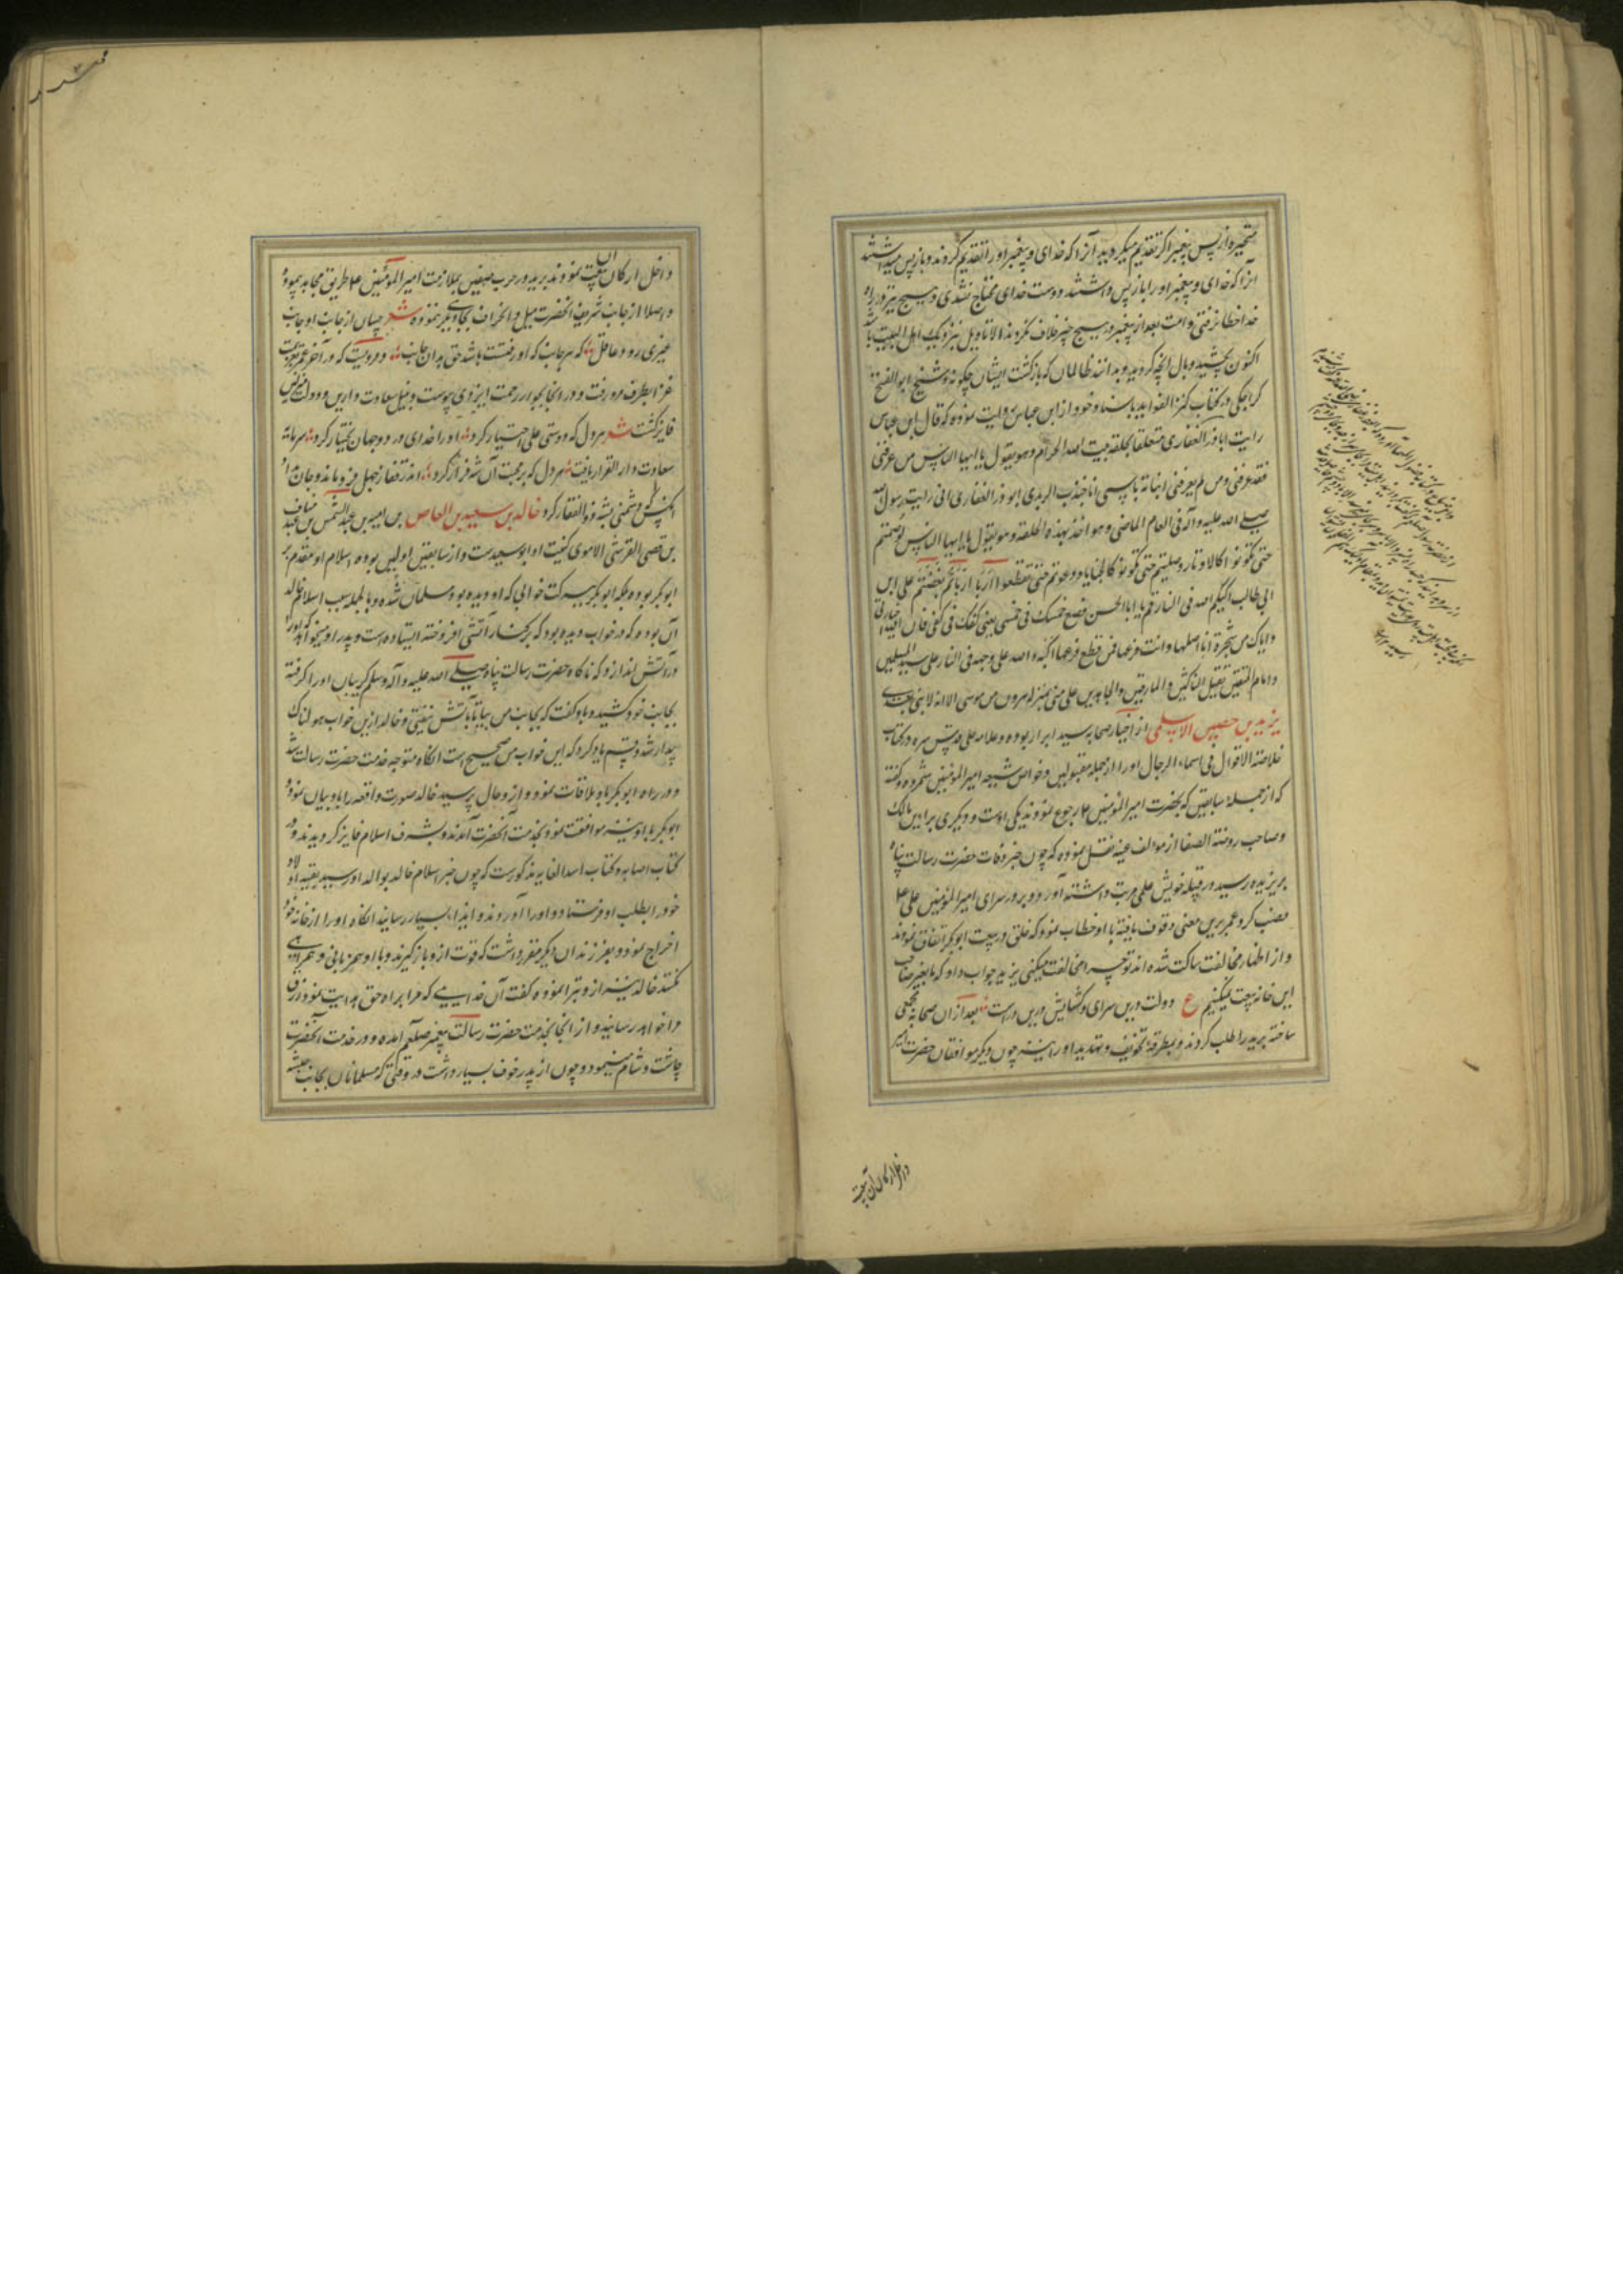 متحیره از پس پیغمبر اگر تقدیم میکردید آنرا که خدای و پیغمبر او را تقدیم کردند و باز پس میداشتید
آنرا که خدای و پیغمبر او را باز پس داشتند دوست خدای محتاج نشدی و هیچ تیر در راه
خدا خطا نرفتی و امت بعد از پیغمبر در هیچ چیز خلاف نکردند الا تاویل نزدیک اهل البیت باشد
اکنون بچشید وبال آنچه کردید و بدانند ظالمان که بازگشت ایشان چگونه و شیخ ابوالفتح
کراجکی در کتاب کنز الفواید باسناد خود از ابن عباس روایت نموده که قال ابن عباس
رایت اباذر الغفاری متعلقا بحلقه بیت الله الحرام و هو یقول یا ایها الناس من عرفنی
فقد عرفنی و من لم یعرفنی انبأته باسمی انا جندب الربذی ابوذر الغفاری انی رایت رسول الله
صلی الله علیه و آله فی العام الماضی و هو اخذ بهذه الحلقه و هو یقول یا ایها الناس لو صمتم
حتی تکونوا کالاوتار و صلیتم حتی تکونوا کالحنایا و دعوتم حتی تقطعوا اربا اربا ثم بغضتم علی ابن
ابی طالب اکبکم الله فی النار قم یا ابا الحسن فضع خمسک فی خمسی یعنی کفک فی کفی فان الله اختارنی
و ایاک من شجرة انا اصلها و انت فرعها فمن قطع فرعها اکبه الله علی وجهه فی النار علی سید المسلمین
و امام المتقین یقتل الناکثین و المارقین و الجاحدین علی منی بمنزله هرون من موسی الا انه لا نبی بعدی
یزید بن حصیب الاسلمی از اخیار صحابه سید ابرار بوده و علامه حلی قدس سره در کتاب
خلاصة الاقوال فی اسماء الرجال او را از جمله مقبولین و خواص شیعه امیر المومنین شمرده و گفته
که از جمله سابقین که بحضرت امیر المومنین ع رجوع نمودند یکی اوست و دیگری براء بن مالک
و صاحب روضة الصفا از موالف غنیه نقل نموده که چون خبر وفات حضرت رسالت پناه
بریزیده رسید در قبیله خویش علمی مرتب داشته آورد و بر در سرای امیر المومنین علی ع
نصب کرد عمر برین معنی وقوف یافته با او خطاب نمود که خلق در بیعت ابوبکر اتفاق نمودند
و از اظهار مخالفت ساکت شده اند تو چرا مخالفت میکنی یزید جواب داد که ما بغیر صاحب
این خانه بیعت نمیکنیم ع دولت درین سرای و گشایش درین دراست بعد از آن صحابه مجمعی
ساخته بریده را طلب کردند و بمطرقه تخویف و تهدید او را نیز چون دیگر موافقان حضرت امیر
داخل ارکان آن بیعت
داخل ارکان آن بیعت نمودند بریده در حرب صفین بملازمت امیر المومنین ع طریق مجاهده پیموده
و اصلا از جانب شریف آنحضرت میل و انحراف بجانب غیر ننموده شعر چسان از جانب او جانب
غیری رود عاقل که هر جانب که او رفتست باشد حق بدان جانب و مرویست که در آخر عمر بعزیمت
غزا بطرف مرو رفت و در آنجا بجوار رحمت ایزدی پیوست و بنیل سعادت دارین و دولت منزلین
فایز گشت شعر هر دل که دوستی علی اختیار کرد او را خدای در دو جهان بختیار کرد سرمایه
سعادت دار القرار یافت هر دل که بر محبت آن شه قرار کرد اندر قفار جهل فرو ماند و جان نداد
آنکس که دشمنی بشه ذوالفقار کرد خالد بن سعید بن العاص بن امیه بن عبد الشمس بن عبد مناف
بن قصی القرشی الاموی کنیت او ابو سعیدست و از سابقین اولین بوده اسلام او مقدم بر
ابوبکر بوده بلکه ابوبکر ببرکت خوابی که او دیده بود مسلمان شده و بالجمله سبب اسلام خالد
آن بوده که در خواب دیده بود که بر کنار آتشی افروخته ایستاده است و پدر او میخواهد که او را
در آتش اندازد که ناگاه حضرت رسالت پناه صلی الله علیه و آله وسلم گریبان او را گرفته
بجانب خود کشید و باو گفت که بجانب من بیا تا بآتش نیفتی و خالد ازین خواب هولناک
بیدار شد و قسم یاد کرد که این خواب من صحیح است آنگاه متوجه خدمت حضرت رسالت شد
و در راه ابوبکر با او ملاقات نمود و از و حال پرسید خالد صورت واقعه را باو بیان نمود و
ابوبکر با او نیز موافقت نمود بخدمت آنحضرت آمدند و بشرف اسلام فایز گردیدند و در
کتاب اصابه و کتاب اسد الغابه مذکورست که چون خبر اسلام خالد بوالد او رسید بقیه اولاد
خود را بطلب او فرستاد و او را آوردند و ایذاء بسیار رسانید آنگاه او را از خانه خود
اخراج نمود و بفرزندان دیگر مقرر داشت که قوت از و باز گیرند و با او همزبانی و همراهی
نکنند خالد نیز از و تبرا نموده گفت آن خدایی که مرا براه حق هدایت نمود رزق
مرا خواهد رسانید و از آنجا بخدمت حضرت رسالت پیغمبر صلعم آمده و در خدمت آنحضرت
چاشت و شام مینمود و چون از پدر خوف بسیار داشت در وقتی که مسلمانان بجانب حبشه